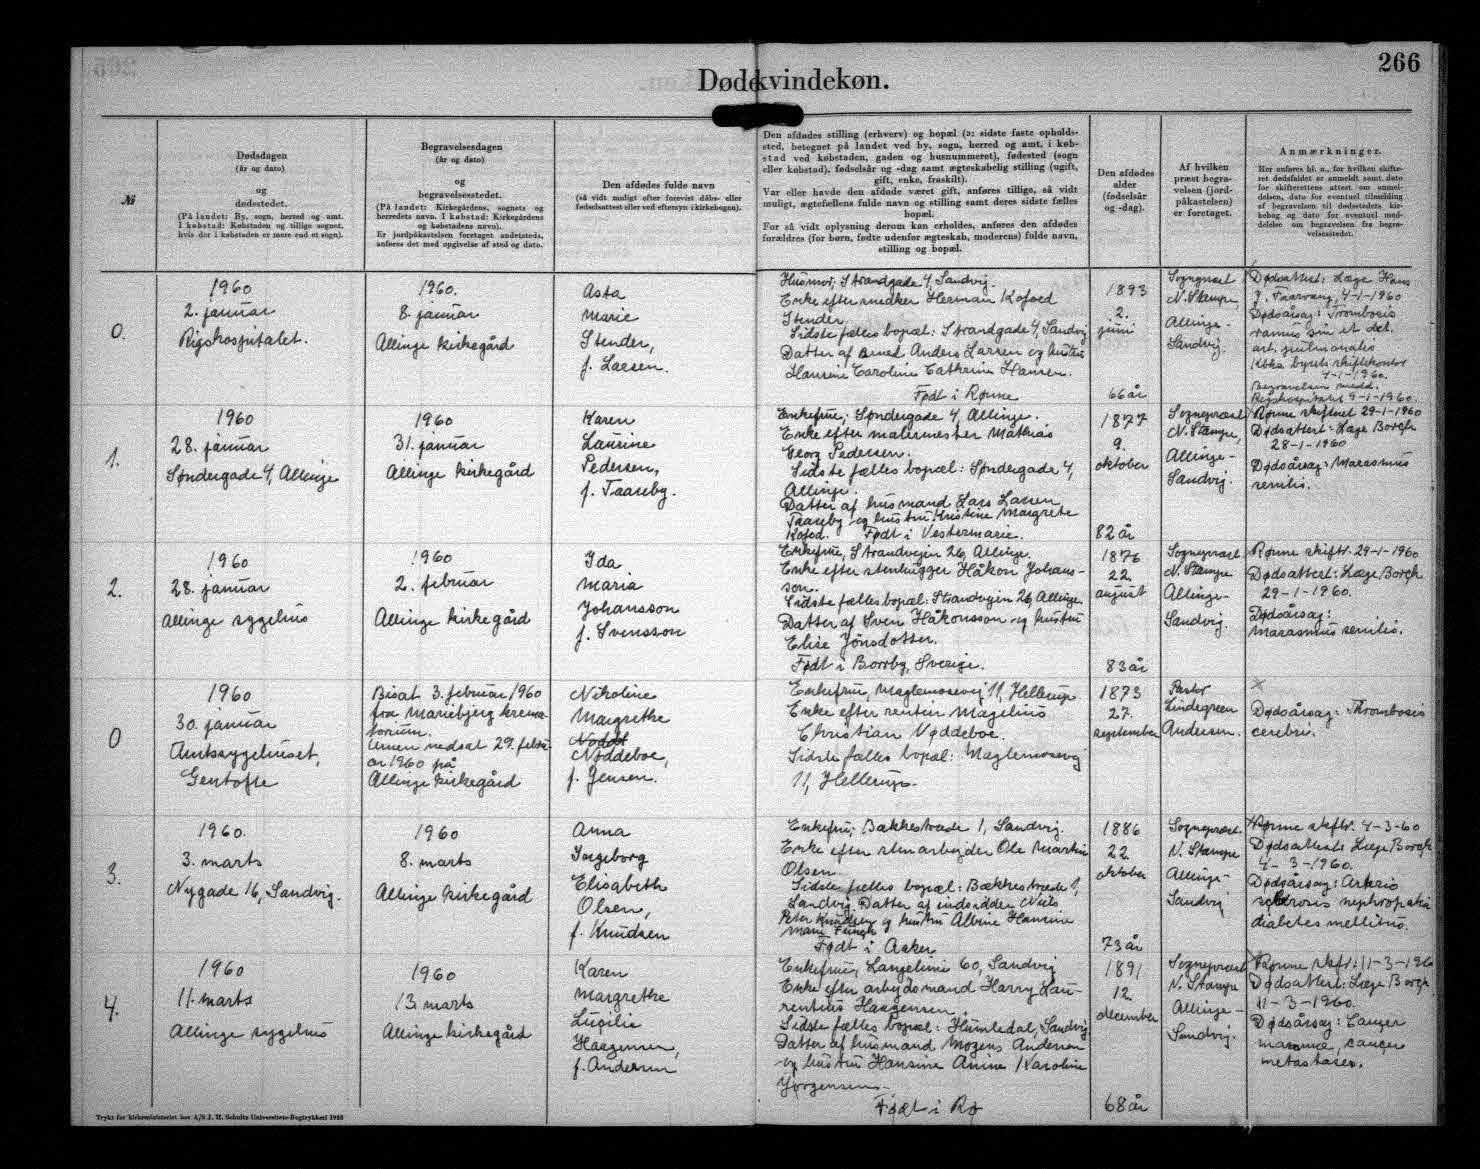 266
Døde kvindekøn.
№
Dødsdagen
(år og dato)
og
dødsstedet.
(På landet: By, sogn, herred og amt.
I købstad: Købstaden og tillige sognet,
hvis der i købstaden er mere end et sogn).
Begravelsesdagen
(år og dato)
og
begravelsesstedet.
(På landet: Kirkegårdens, sognets og
herredets navn. I købstad: Kirkegårdens
og købstadens navn).
Er jordpåkastelsen foretaget andetsteds,
anføres det med opgivelse af sted og dato.
Den afdødes fulde navn
(så vidt muligt efter forevist dåbs- eller
fødselsattest eller ved eftersyn i kirkebogen).
Den afdødes stilling (erhverv) og bopæl (ɔ: sidste faste opholds-
sted, betegnet på landet ved by, sogn, herred og amt, i køb-
stad ved købstaden, gaden og husnummeret), fødested (sogn
eller købstad), fødselsår og -dag samt ægteskabelig stilling (ugift,
gift, enke, fraskilt).
Var eller havde den afdøde været gift, anføres tillige, så vidt
muligt, ægtefællens fulde navn og stilling samt deres sidste fælles
bopæl.
For så vidt oplysning derom kan erholdes, anføres den afdødes
forældres (for børn, fødte udenfor ægteskab, moderens) fulde navn,
stilling og bopæl.
Den afdødes
alder
(fødselsår
og -dag).
Af hvilken
præst begra-
velsen (jord-
påkastelsen)
er foretaget.
Anmærkninger.
Her anføres bl. a., for hvilken skifte-
ret dødsfaldet er anmeldt samt dato
for skifterettens attest om anmel-
delsen, dato for eventuel tilmelding
af begravelsen til dødsstedets kir-
kebog og dato for eventuel med-
delelse om begravelsen fra begra-
velsesstedet.
0.
1960
2. januar
Rigshospitalet.
1960.
8. januar
Allinge kirkegård
Asta
Marie
Stender,
f. Larsen.
Husmor, Strandgade 4, Sandvig.
Enke efter Herman Kofoed
Stender
Sidste fælles bopæl: Strandgade 4, Sandvig
Datter af Anders Larsen og hustru
Hansine Caroline Cathrine Hansen.
Født i Rønne
1893
2.
juni
66 år
Sognepræst
N. Stampe,
Allinge-
Sandvig.
Dødsattest: Læge Hans
J. Faarvang, 4-1-1960
Dødsårsag: Trombosis
ramus sin et det.
art. pulmonalis
Kbhs. byrets skiftekontor
4-1-1960.
Begravelsen medd.
Rigshospitalet 9-1-1960.
1.
1960
28. januar
Søndergade 4, Allinge
1960
31. januar
Allinge kirkegård
Karen
Laurine
Pedersen,
f. Taaseby.
Enkefrue, Søndergade 4, Allinge.
Enke efter malermester Mathias
Georg Pedersen.
Sidste fælles bopæl: Søndergade 4,
Allinge.
Datter af husmand Lars Larsen
Taaseby og hustru Kristine Margrete
Kofod. Født i Vestermarie.
1877
9.
oktober
82 år
Sognepræst
N. Stampe,
Allinge-
Sandvig.
Rønne skifteret 29-1-1960
Dødsattest: Læge Borgh
28-1-1960
Dødsårsag: Marasmus
senilis.
2.
1960
28. januar
Allinge sygehus
1960
2. februar
Allinge kirkegård
Ida
Maria
Johansson
f. Svensson
Enkefrue, Strandvejen 26, Allinge.
Enke efter stenhugger Håkon Johans-
son.
Sidste fælles bopæl: Strandvejen 26, Allinge.
Datter af Sven Håkonsson og hustru
Elise Jönsdotter.
Født i Borrby, Sverige.
1876
22.
august
83 år
Sognepræst
N. Stampe
Allinge-
Sandvig.
Rønne skiftr. 29-1-1960
Dødsattest: Læge Borgh
29-1-1960.
Dødsårsag:
Marasmus senilis.
0
1960
30. januar
Amtssygehuset,
Gentofte
Bisat 3. februar 1960
fra Mariebjerg krema-
torium.
Urnen nedsat 29. febru-
ar 1960 på
Allinge kirkegård
Nikoline
Margrethe
Nøddeboe,
f. Jensen.
Enkefrue, Maglemosevej 11, Hellerup
Enke efter rentier Magelius
Christian Nøddeboe.
Sidste fælles bopæl: Maglemosevej
11, Hellerup.
1873
27.
september
Pastor
Lindegreen
Andersen.
x
Dødsårsag: Thrombosis
cerebri.
3.
1960.
3. marts
Nygade 16, Sandvig.
1960
8. marts
Allinge kirkegård
Anna
Ingeborg
Elisabeth
Olsen,
f. Knudsen
Enkefrue, Bækkestræde 1, Sandvig.
Enke efter stenarbejder Ole Martin
Olsen.
Sidste fælles bopæl: Bækkestræde 1,
Sandvig. Datter af indsidder Niels
Peter Knudsen og hustru Albine Hansine
Marie Funch
Født i Aaker
1886
22.
oktober
73 år
Sognepræst.
N. Stampe
Allinge-
Sandvig
Rønne skiftr. 4-3-60
Dødsattest: Læge Borgh
4-3-1960.
Dødsårsag: Arterio
sclerosis nephropatia
diabetes mellitus.
4.
1960
11. marts
Allinge sygehus
1960
13. marts
Allinge kirkegård
Karen
Margrethe
Lucilie
Haagensen,
f. Andersen
Enkefrue, Langelinie 60, Sandvig
Enke efter arbejdsmand Harry Lau-
rentius Haagensen.
Sidste fælles bopæl: Humledal, Sandvig
Datter af husmand Mogens Andersen
og hustru Hansine Anine Karoline
Jørgensen.
Født i Rø
1891
12.
december
68 år
Sognepræst
N. Stampe
Allinge-
Sandvig.
Rønne skiftr: 11-3-1960
Dødsattest: Læge Borgh
11-3-1960.
Dødsårsag: Cancer
mammæ, cancer
metastases.
Trykt for kirkeministeriet hos A/S J. H. Schultz Universitets-Bogtrykkeri 1955